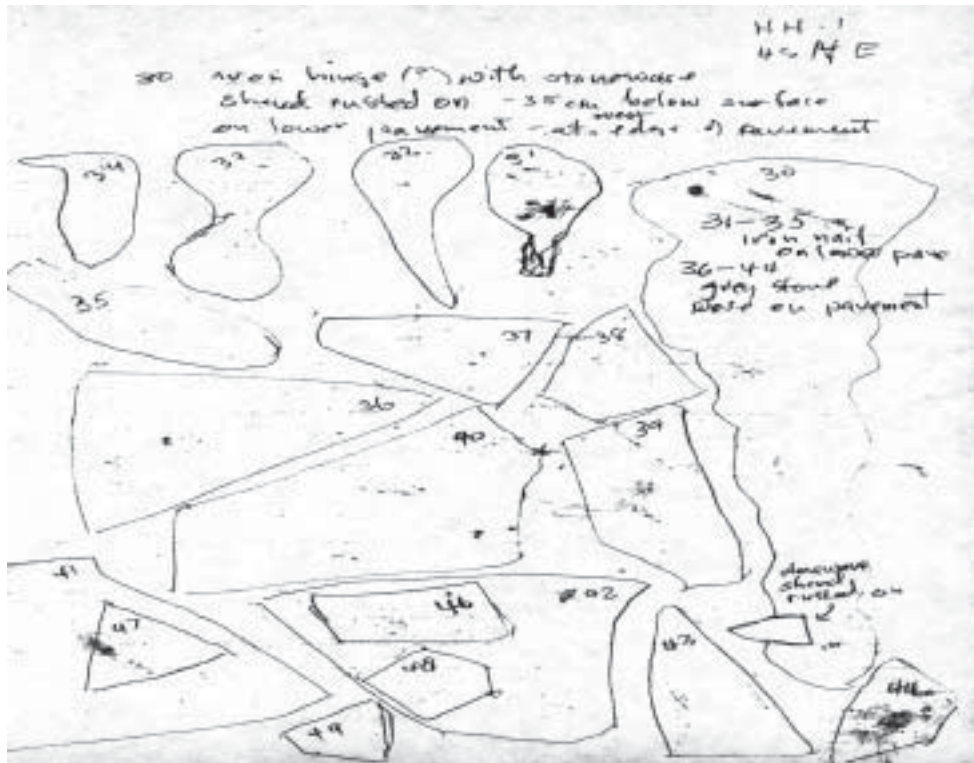 HH.1
30 iron hinge (?) with stoneware
sherd rusted on -35cm below surface
on lower pavement - at edge of pavement
34
33
32
31
30
31-35
iron nail
on lower pave
36-44
grey stone
ware on pavement
35
37
38
36
40
39
41
47
46
48
49
43
stoneware
sherd
rusted on
44